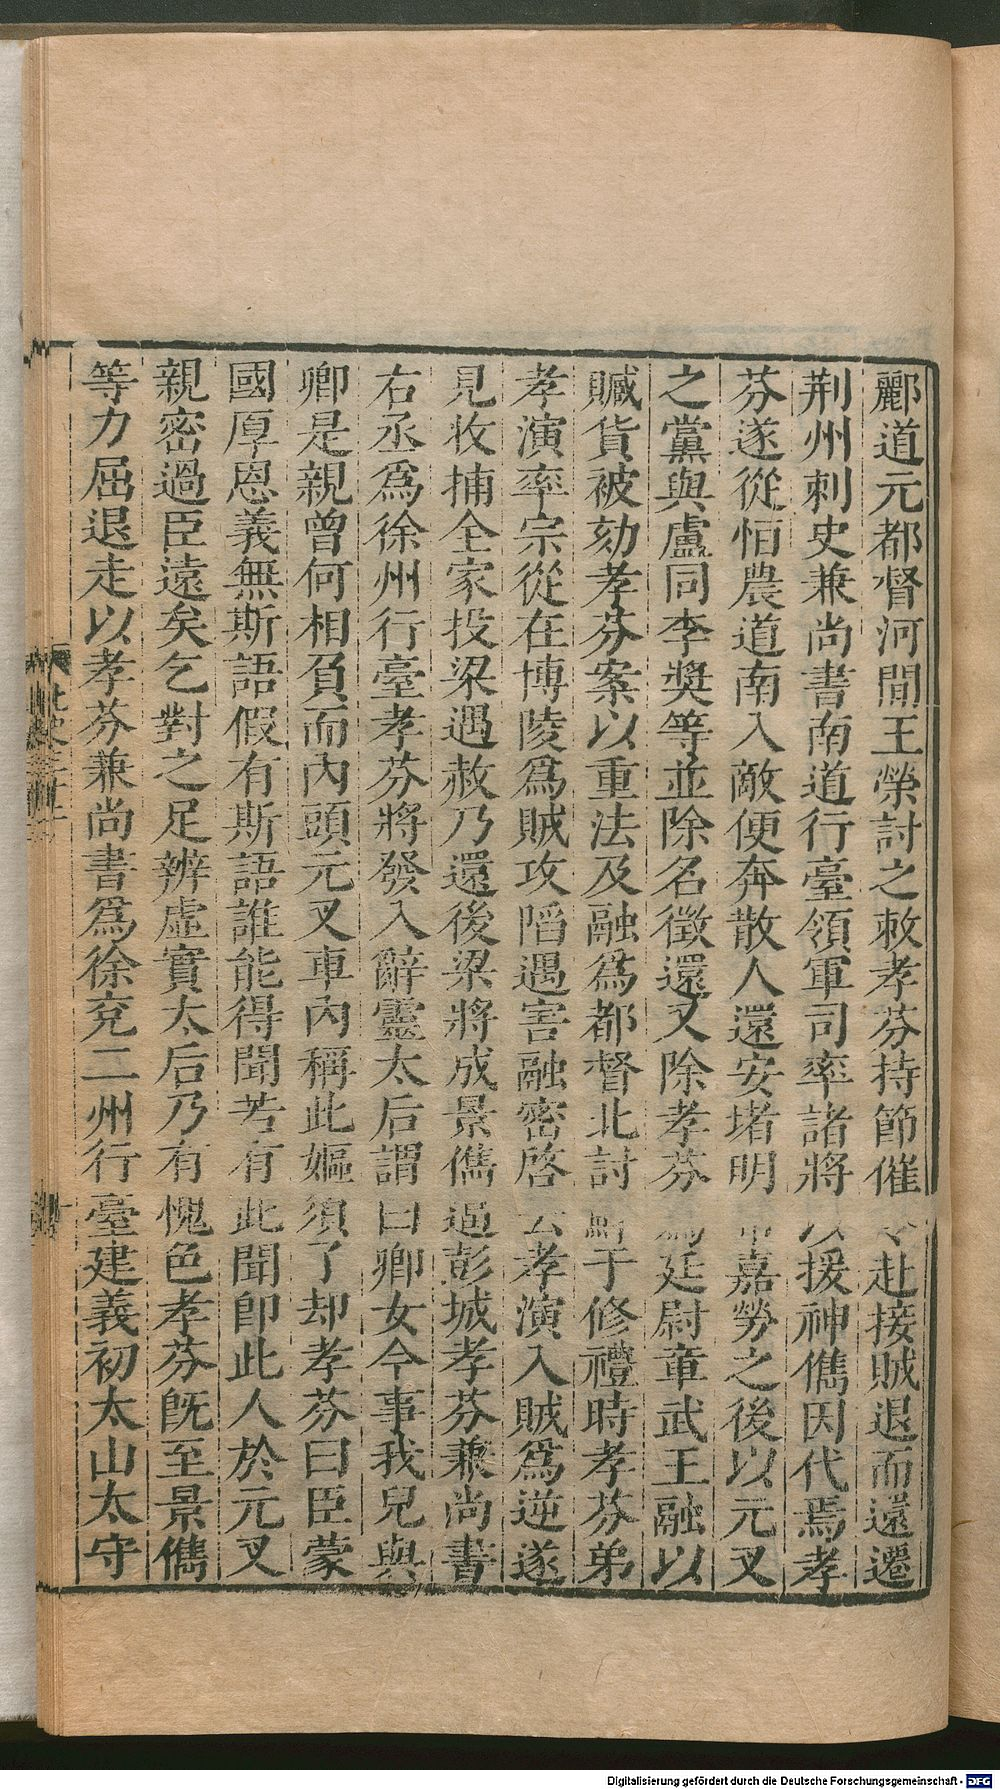 酈道元都督河間王榮討之敕孝芬持節催令赴接賊退而還遷
荆州刺史兼尚書南道行臺領軍司率諸將以援神儁因代焉孝
芬遂從恒農道南入敵便奔散人還安堵明帝嘉勞之後以元叉
之黨與盧同李奬等並除名徵還又除孝芬爲廷尉章武王融以
贓貨被劾孝芬案以重法及融爲都督北討鮮于修禮時孝芬弟
孝演率宗從在博陵爲賊攻䧟遇害融密啓云孝演入賊爲逆遂
見收捕全家投梁遇赦乃還後梁將成景儁逼彭城孝芬兼尚書
右丞爲徐州行臺孝芬將發入辭靈太后謂曰卿女今事我兒與
卿是親曾何相負而内頭元叉車内稱此嫗須了却孝芬曰臣蒙
國厚恩義無斯語假有斯語誰能得聞若有此聞卽此人於元叉
親密過臣遠矣乞對之足辨虛實太后乃有愧色孝芬旣至景儁
等力屈退走以孝芬兼尚書爲徐兗二州行臺建義初太山太守